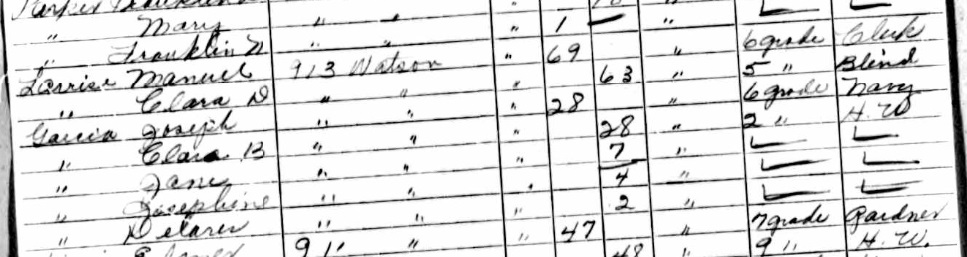 " Mary " " "
" Franklin " " " 1 "
Manuel 913 Watson " 69 " 6 grade Clerk
" Clara D " " " 63 " 5 " Blind
Garcia Joseph " " " 28 " 6 grade Navy
" Clara B " " " 28 " 2 " H.W
" Jane " " " 7 "
" Josephine " " " 4 "
" Delores " " " 2 "
911 " " 47 " 7 grade Gardner
48 " 9 " H.W.